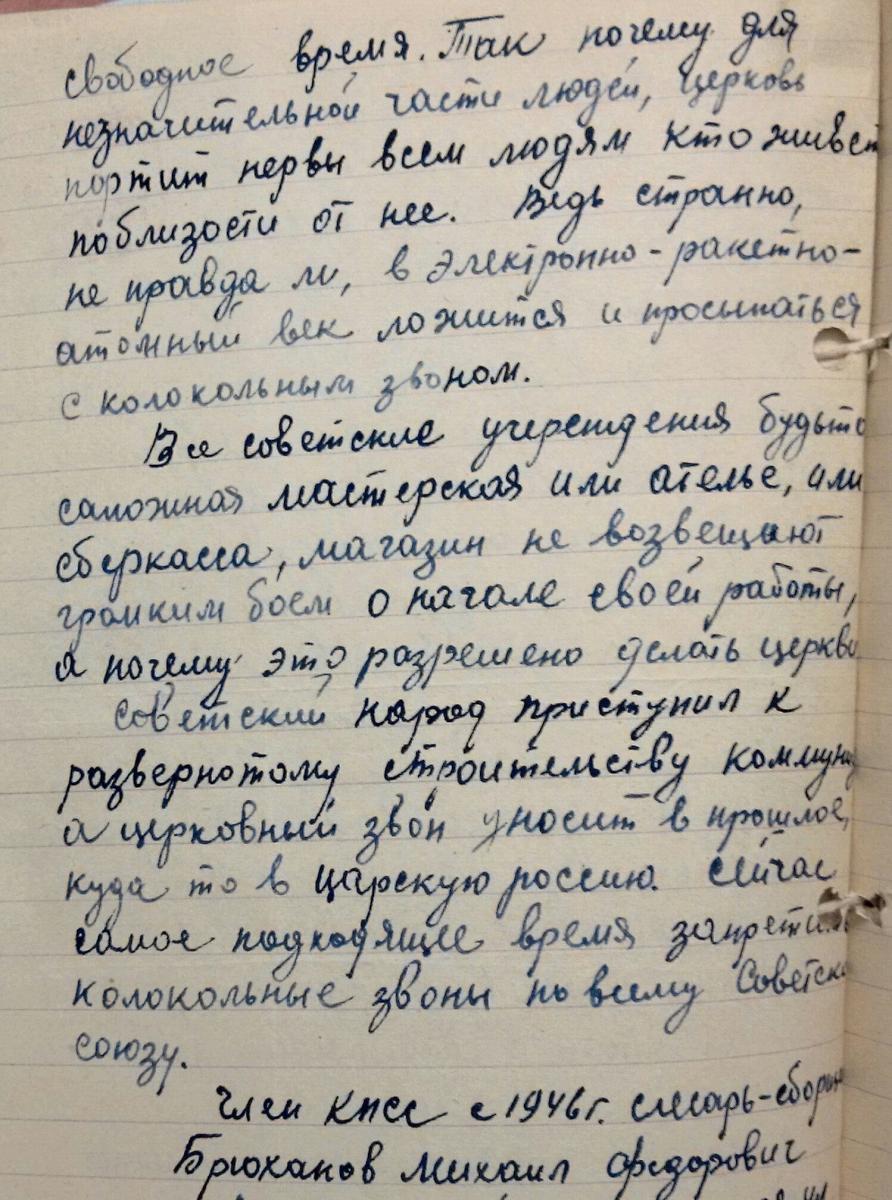 свободное время. Так почему для
незначительной части людей, церковь
портит нервы всем людям кто живет
поблизости от нее. Ведь странно,
не правда ли, в электронно-ракетно-
атомный век ложится и просыпаться
с колокольным звоном.
Все советские учереждения будьто
сапожная мастерская или ателье, или
сберкасса, магазин не возвещают
громким боем о начале своей работы,
а почему это разрешено делать церкви
Советский народ приступил к
развернотому строительству коммуниз
а церковный звон уносит в прошлое,
куда то в царскую россию. Сейчас
самое подходящее время запретить
колокольные звоны по всему Советско
союзу.
Член КПСС с 1946г. слесарь-сборщи
Брюханов Михаил Федорович